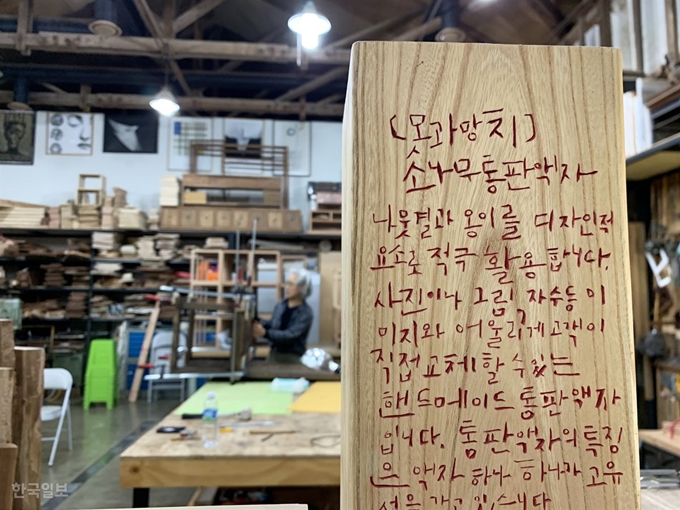 [못과망치]
소나무통판액자
나뭇결과 옹이를 디자인적
요소로 적극 활용합니다.
사진이나 그림, 자수등 이
미지와 어울리게 고객이
직접 교체할 수 있는
핸드메이드 통판액자
입니다. 통판액자의 특징
은 액자 하나 하나가 고유
성을 갖고 있습니다
한국일보